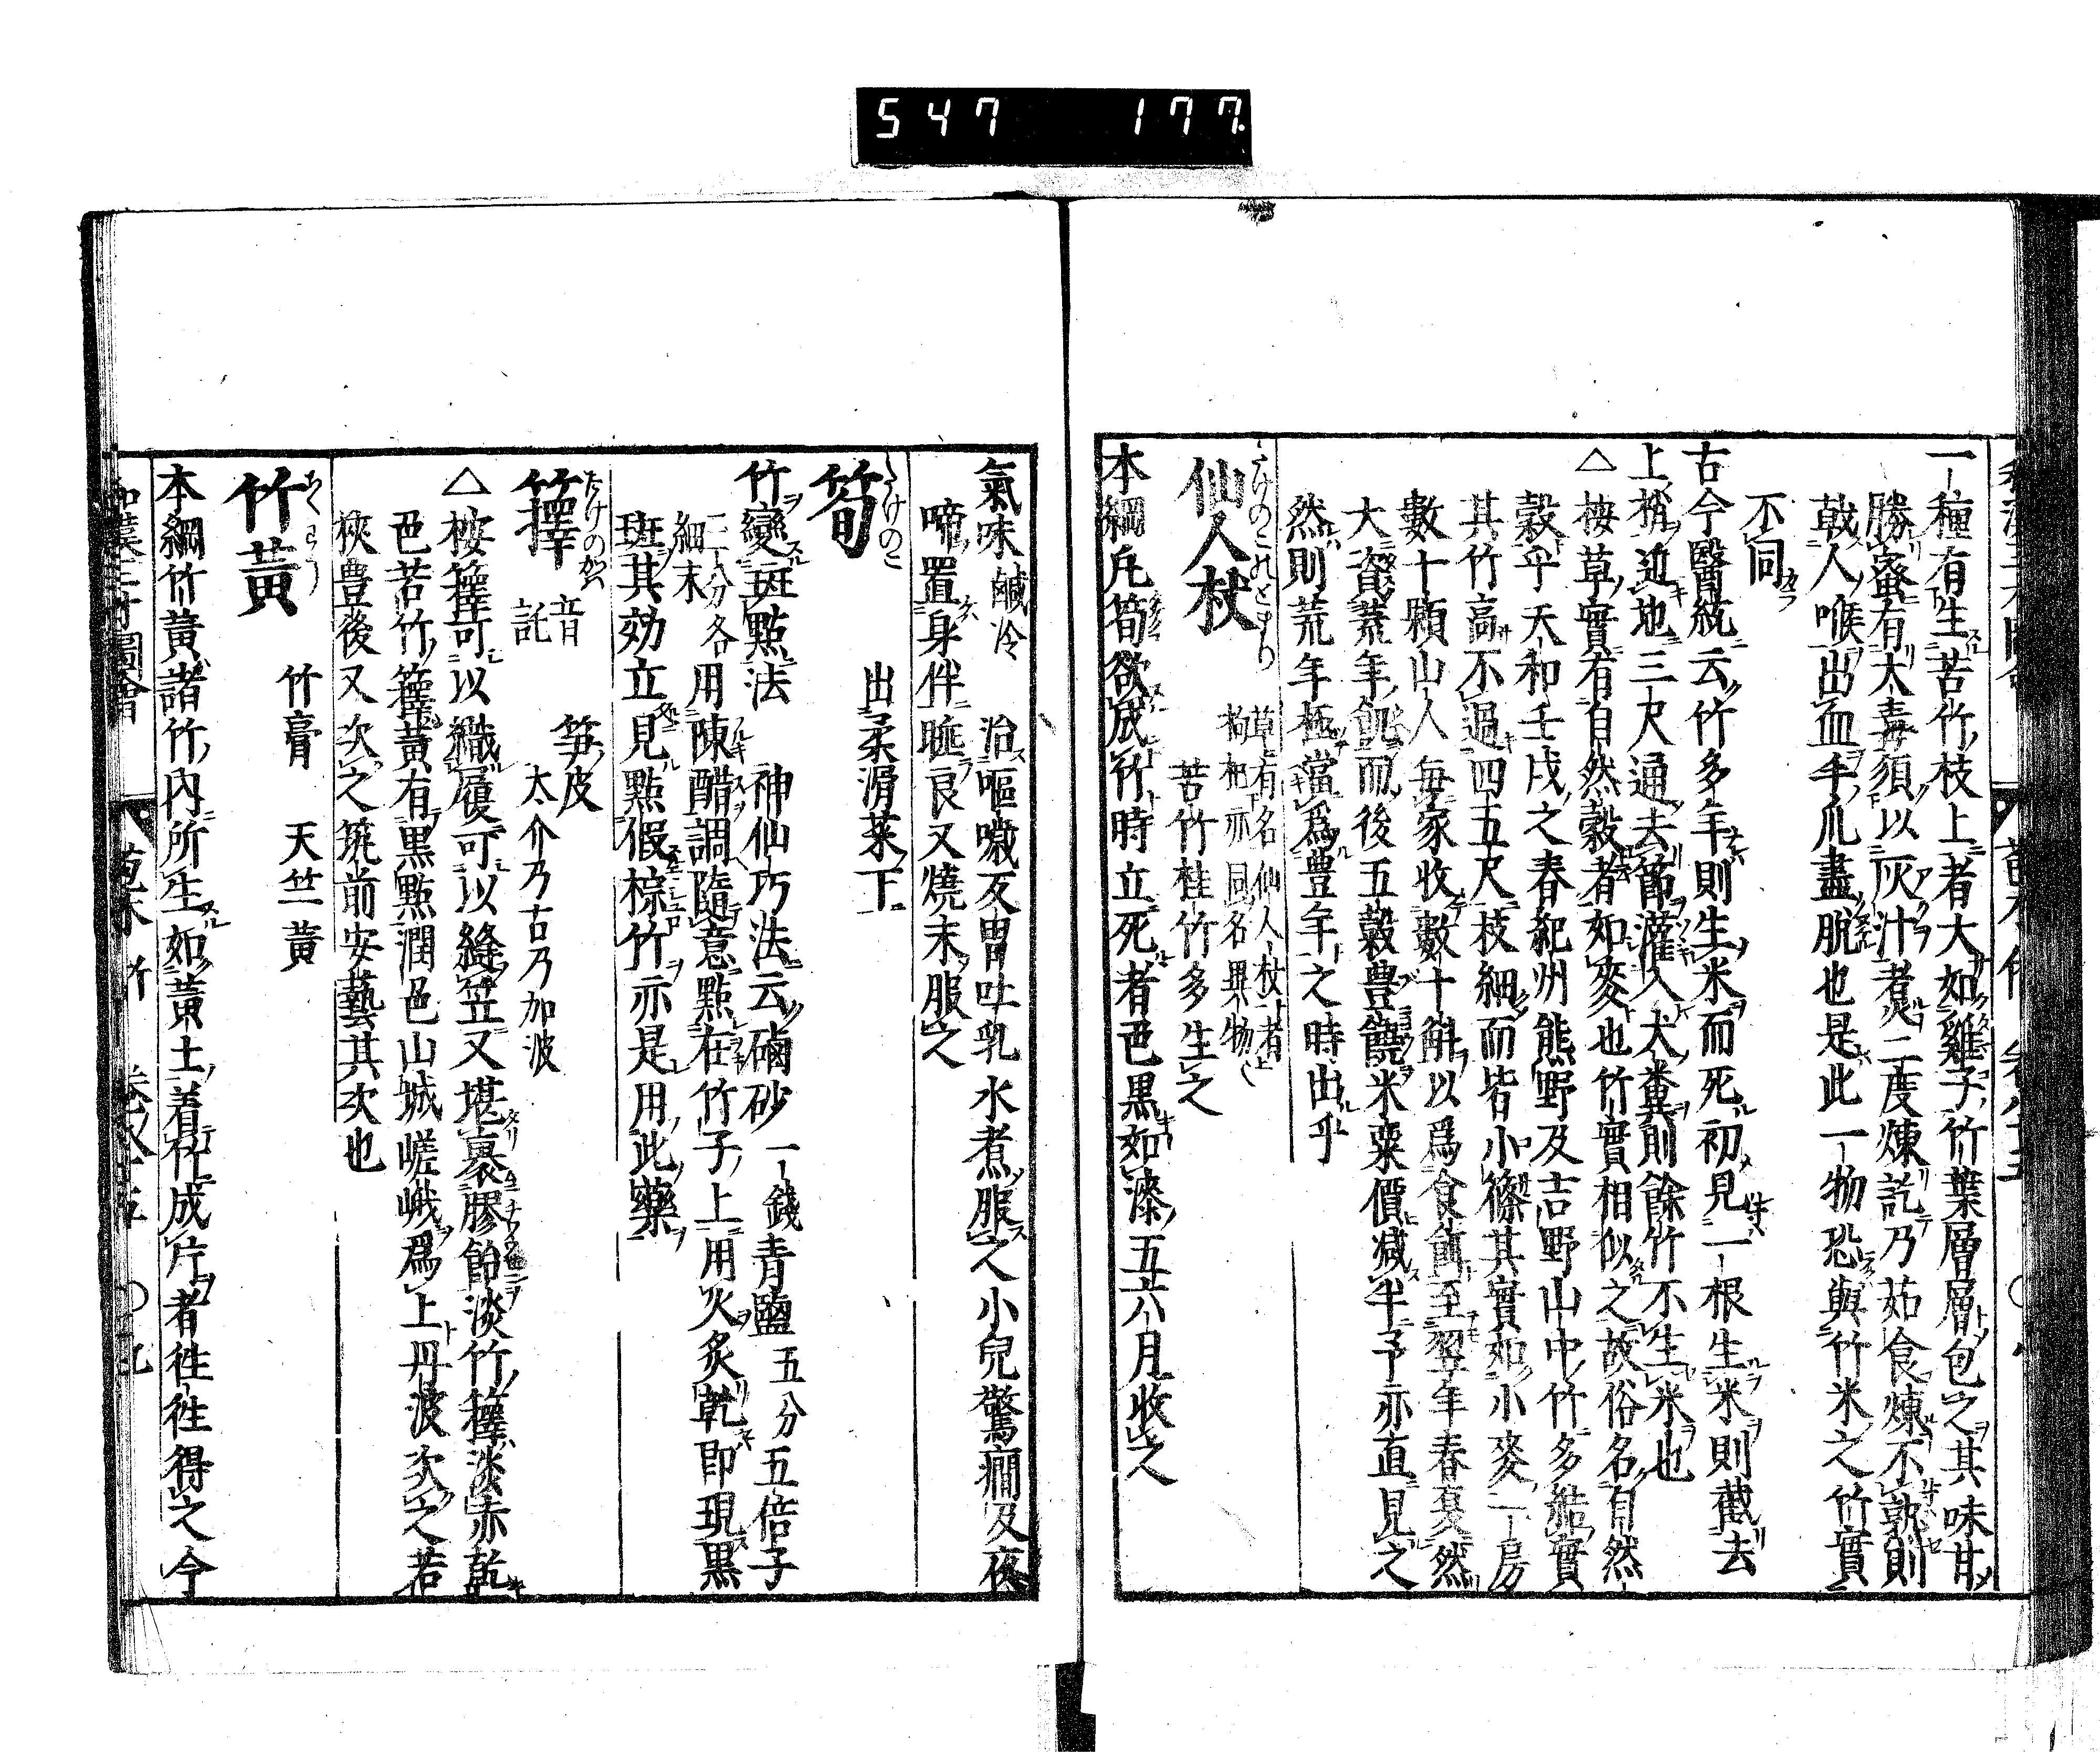 547 177
一種有生苦竹枝上者大如雞子竹葉層層包之其味甘
勝蜜有大毒須以灰汁煮二度煉訖乃茹食煉不熟則
戟人喉出血手爪盡脱也是此一物恐與竹米之竹實
不同
古今醫統云竹多年則生米而死初見一根生米則截去
上梢近地三尺通去節灌入犬糞則餘竹不生米也
△按草實有自然穀者如麥也竹實相似之故俗名自然
穀乎天和壬戌之春紀州熊野及吉野山中竹多結實
其竹高不過四五尺枝細而皆小篠其實如小麥一房
數十顆山人毎家收數十斛以爲食餌至翌年春夏然
大資荒年飢而後五穀豊饒米粟價減半予亦直見之
然則荒年極當爲豊年之時出乎
仙人杖
草有名仙人杖者
枸杞亦同名異物
苦竹桂竹多生之
本綱凡筍欲成竹時立死者色黒如漆五六月收之
氣味鹹冷 治嘔噦反胃吐乳水煮服之小兒驚癇及夜
啼置身伴睡良又燒末服之
筍 たけのこ
出柔滑菜下
竹變斑點法 神仙巧法云磠砂一錢青鹽五分五倍子
二分各細末用陳醋調隨意點在竹子上用火炙乾即現黒
斑其効立見點假棕竹亦是用此藥
籜 たけのかハ
音託
笋皮
太介乃古乃加波
△按籜可以織履可以縫笠又堪裹膠飴淡竹籜淡赤乾
色苦竹籜黄有黒點潤色山城嵯峨爲上丹波次之若
狹豊後又次之筑前安藝其次也
竹黄 ちくわう
竹膏 天竺黄
本綱竹黄諸竹内所生如黄土着竹成片者徃徃得之今